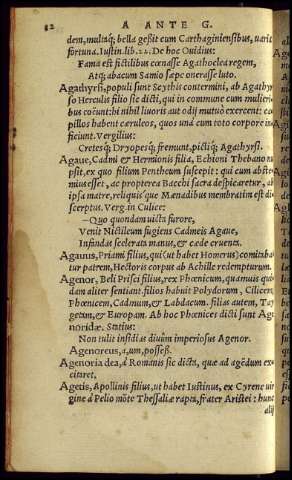 82 A ANTE G.
dem, multaq; bella geßit cum Carthaginiensibus, uaria
fortuna. Iustin. lib. 22. De hoc Ouidius:
Fama est fictilibus cœnasse Agathoclea regem,
Atq; abacum Samio sæpe onerasse luto.
Agathyrsi, populi sunt Scythis contermini, ab Agathyr
so Herculis filio sic dicti, qui in commune cum mulieri
bus coëunt: hi nihil liuoris aut odij mutuò exercent: ca
pillos habent cœruleos, quos unà cum toto corpore in
ficiunt. Vergilius:
Cretesq;, Dryopesq;, fremunt, pictiq; Agathyrsi.
Agaue, Cadmi & Hermionis filia, Echioni Thebano nu
psit, ex quo filium Pentheum suscepit: qui cum abste
mius esset, ac propterea Bacchi sacra despicaretur, ab
ipsa matre, reliquis que Mænadibus membratim est di
scerptus. Verg. in Culice:
—Quo quondam uicta furore,
Venit Nictileum fugiens Cadmeis Agaue,
Infandas scelerata manus, & cæde cruenta.
Agauus, Priami filius, qui (ut habet Homerus) comitaba
tur patrem, Hectoris corpus ab Achille redempturum.
Agenor, Beli Prisci filius, rex Phœnicum, quamuis qui
dam aliter sentiant. filios habuit Polydorum, Cilicem,
Phœnicem, Cadmum, & Labdacum. filias autem, Tay
getam, & Europam. Ab hoc Phœnices dicti sunt Age
noridæ. Statius:
Non tulit insidias diuûm imperiosus Agenor.
Agenoreus, a, um, posseß.
Agenoria dea, à Romanis sic dicta, quæ ad agēdum ex
citaret.
Agetis, Apollinis filius, ut habet Iustinus, ex Cyrene uir
gine à Pelio mōte Thessaliæ rapta, frater Aristei: hunc
alij